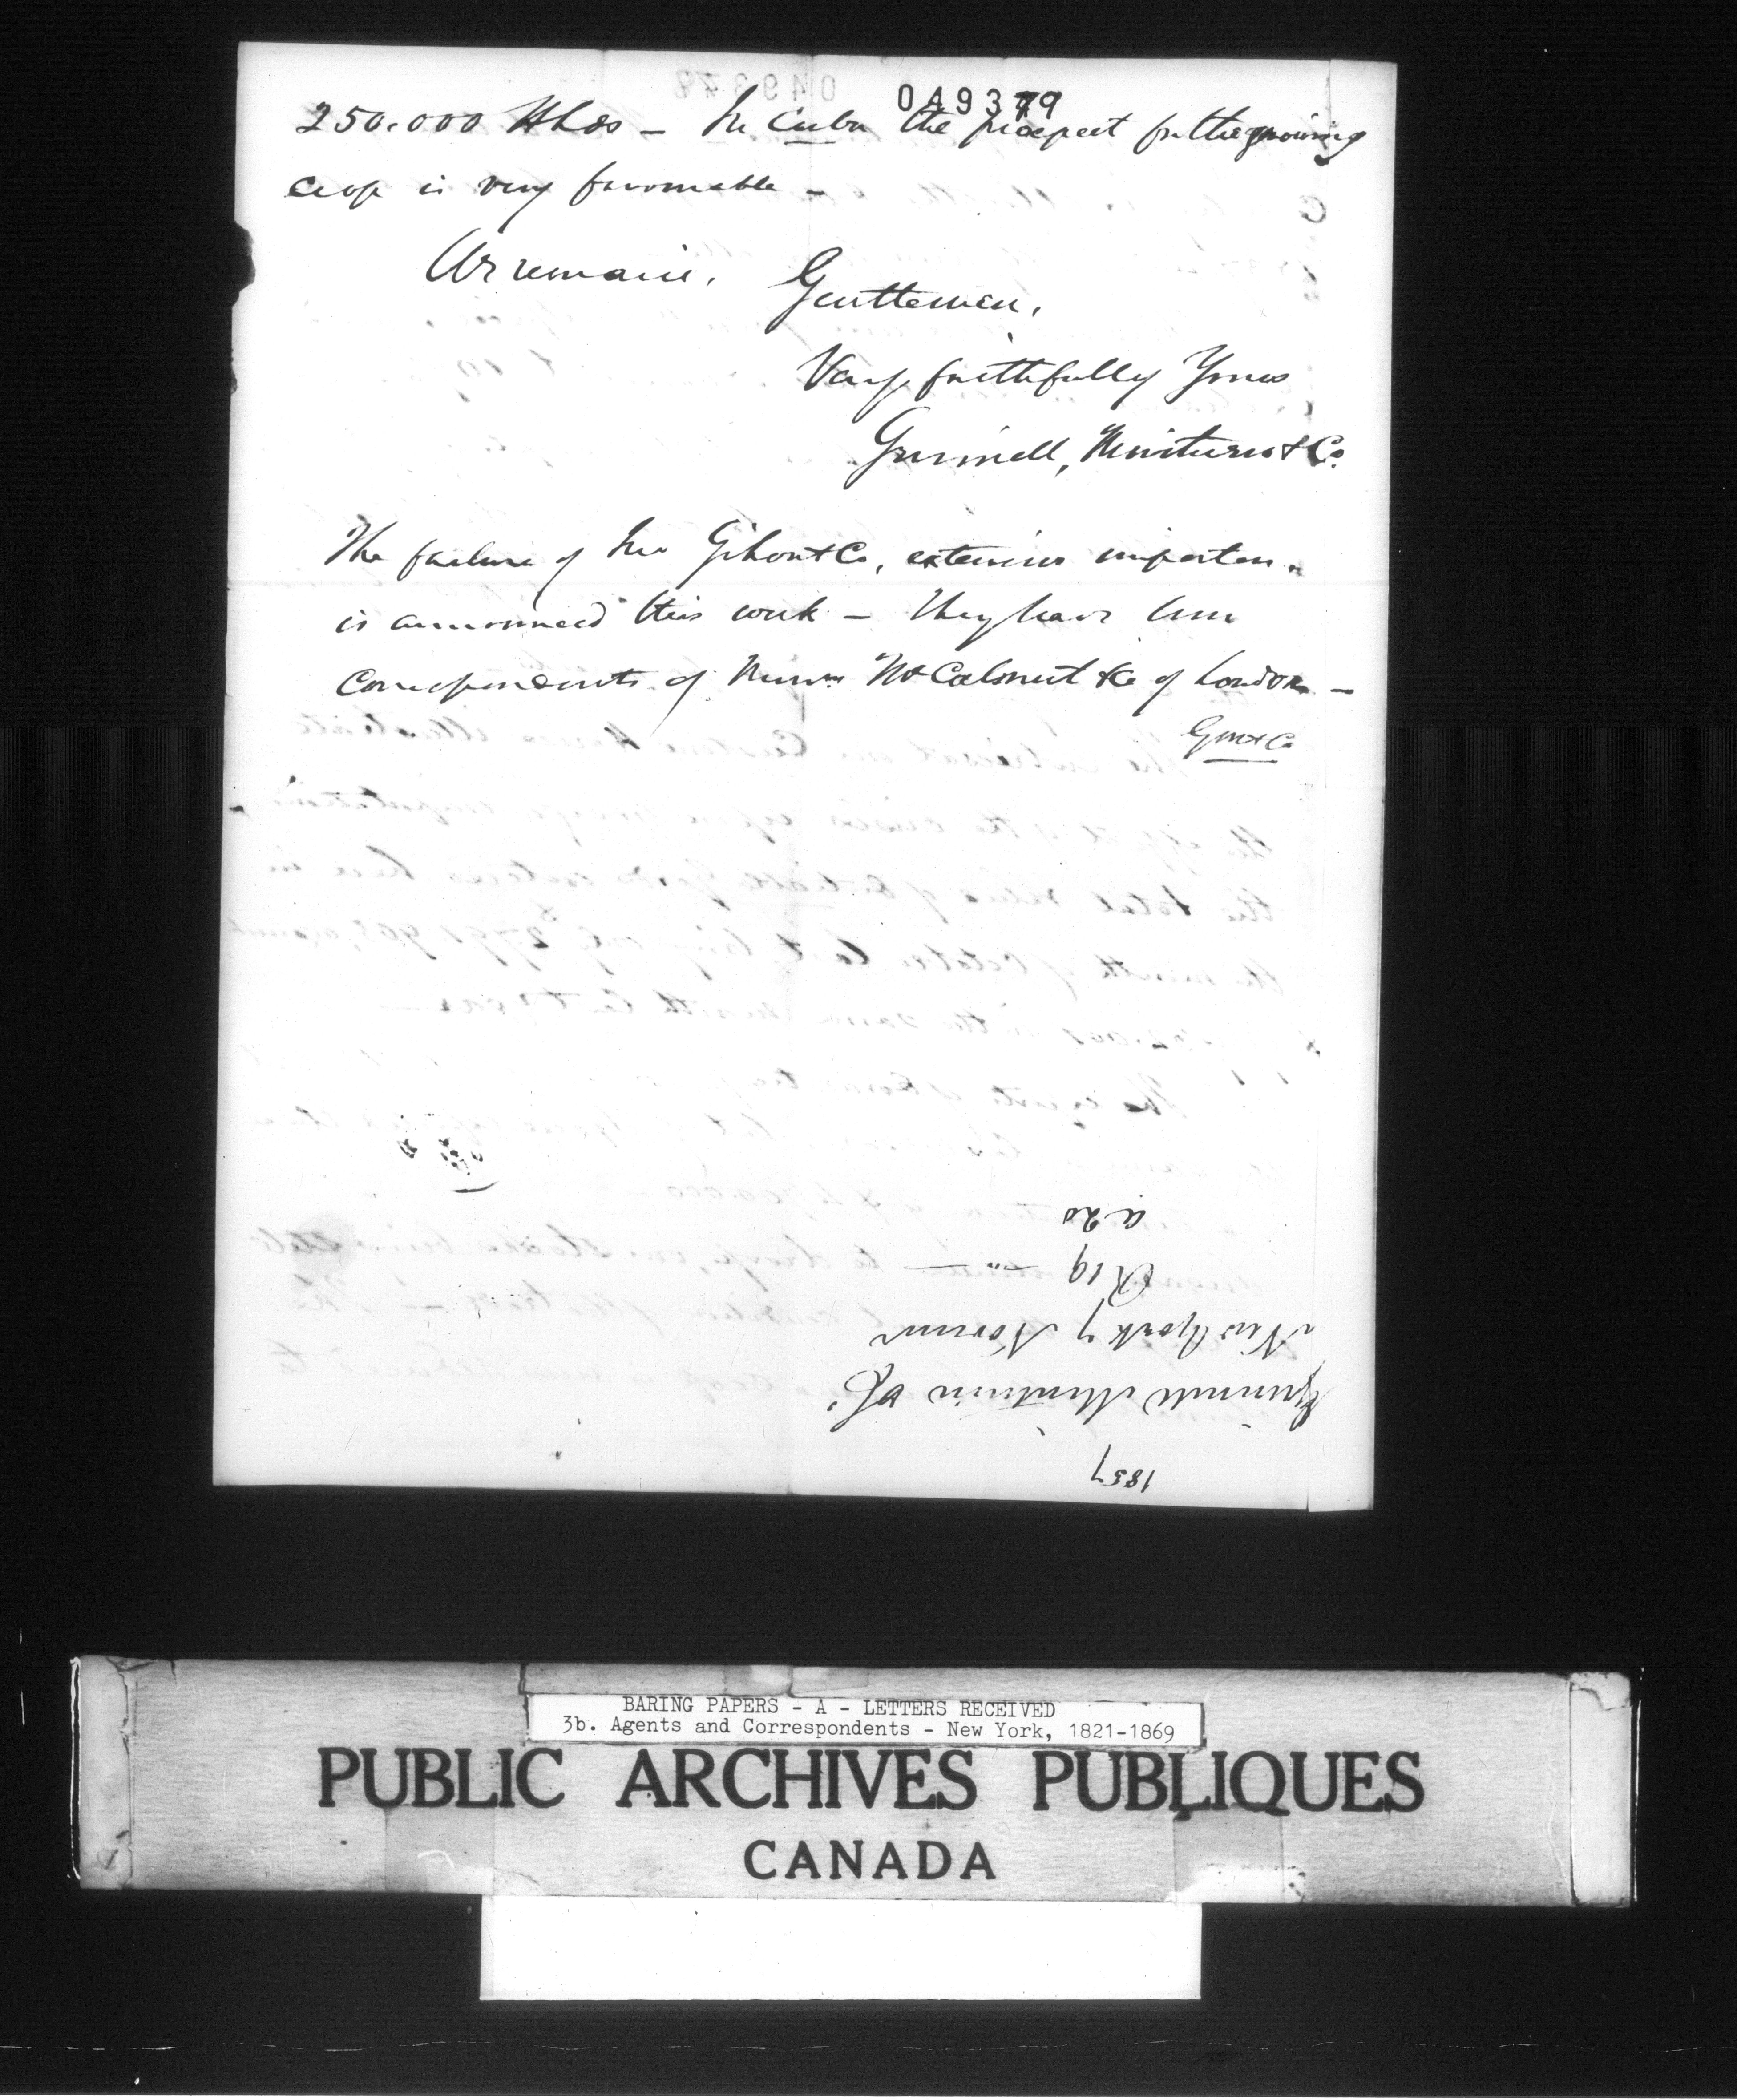 049379
250.000 Hhds — In Cuba the prospect for the growing
crop is very favorable —
We remain,
Gentlemen,
Very faithfully Yours
Grinnell, Minturn & Co.
The failure of Jno Gihon & Co, extensive importers,
is announced this week — They have been
correspondents of Messrs McCalmont & Co of London —
GM & Co
1857
Grinnell Minturn & Co
New York 7 Novemr
R 19 — " —
a 20
BARING PAPERS - A - LETTERS RECEIVED
3b. Agents and Correspondents - New York, 1821-1869
PUBLIC ARCHIVES PUBLIQUES
CANADA